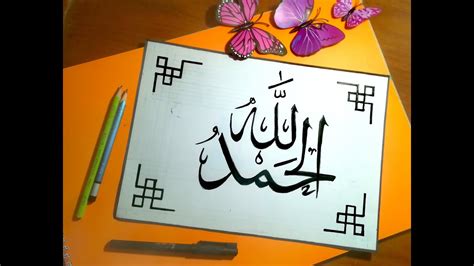 الحَمدُ لله